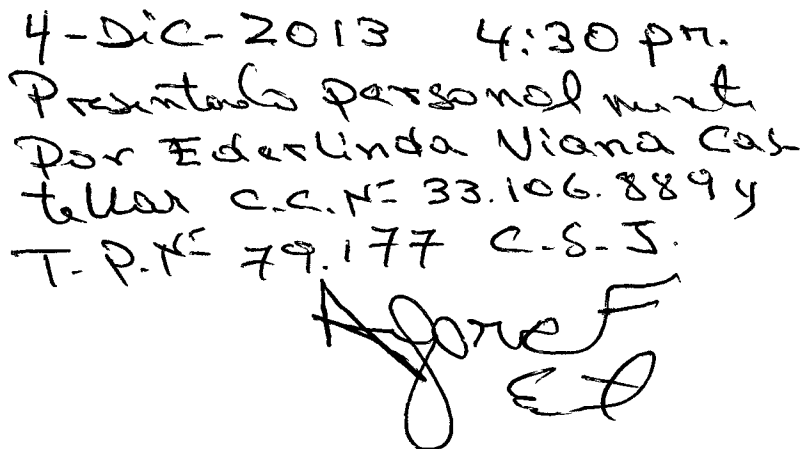 4-Dic-2013 4:30 pm.
Presentado personalment
Por Ederlinda Viana Cas-
tellar C.C.Nº 33.106.889 y
T.P.Nº 79.177 C.S.J.